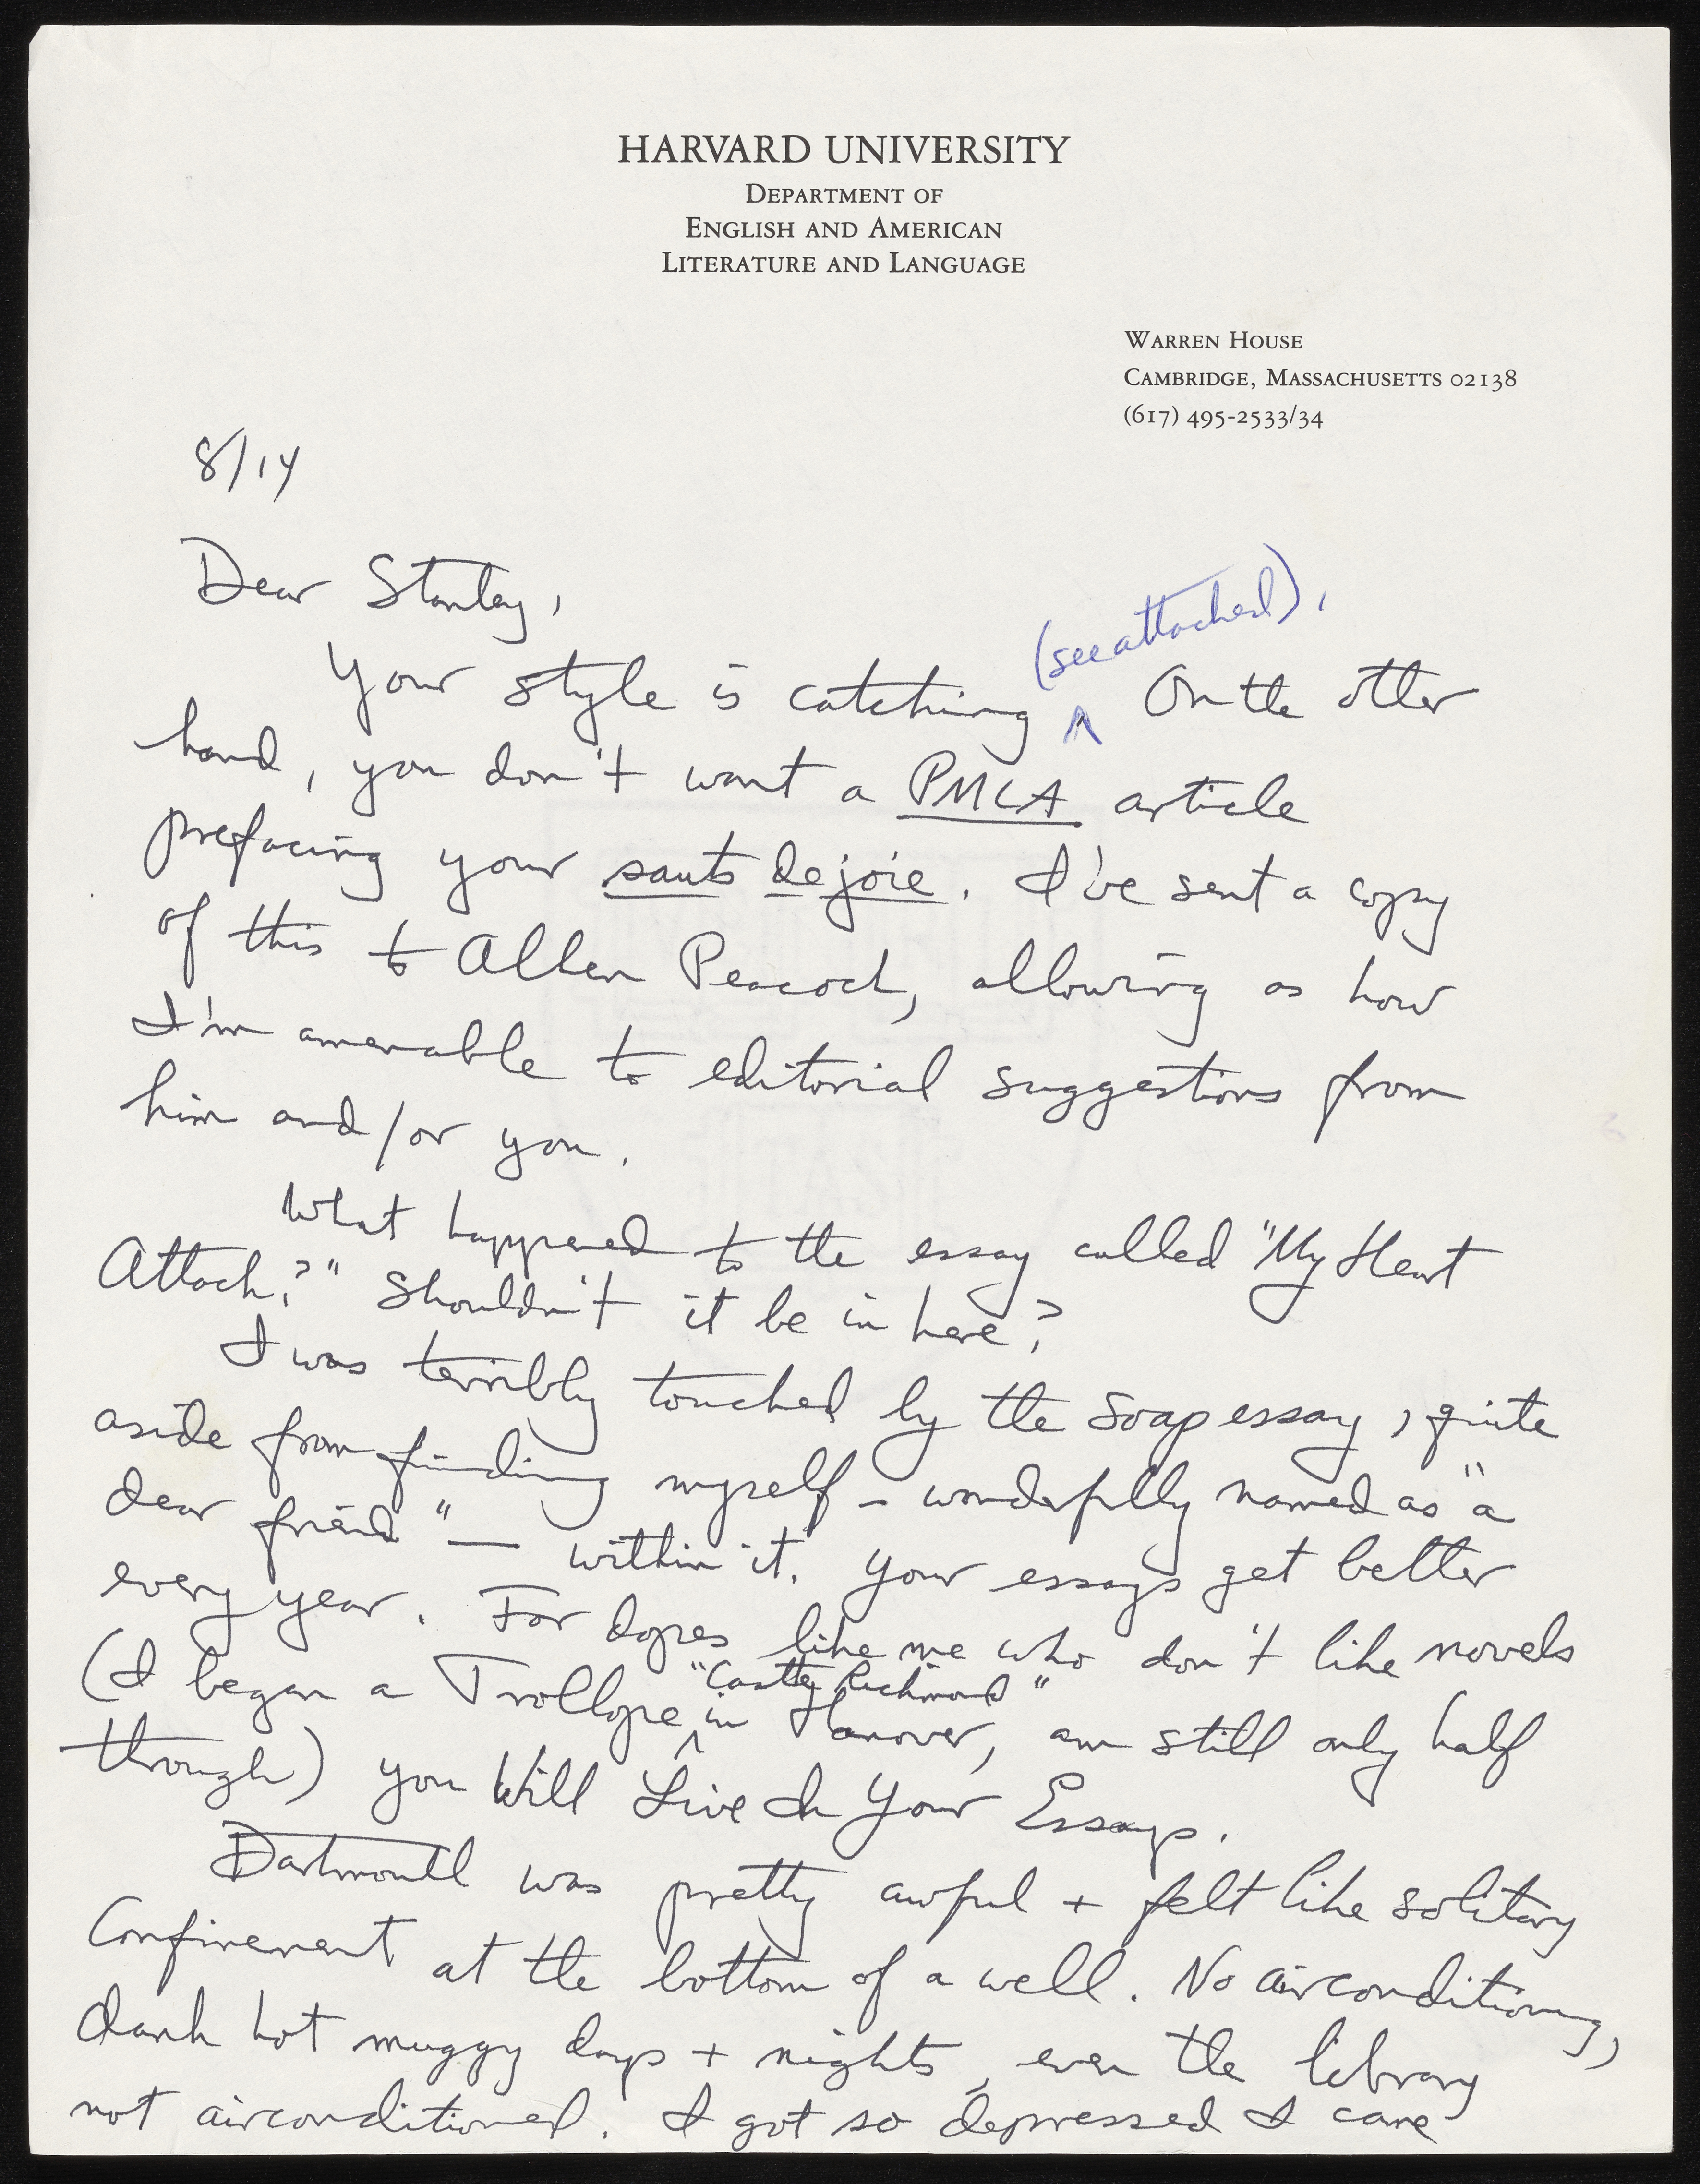 HARVARD UNIVERSITY
DEPARTMENT OF
ENGLISH AND AMERICAN
LITERATURE AND LANGUAGE
WARREN HOUSE
CAMBRIDGE, MASSACHUSETTS 02138
(617) 495-2533/34
8/14
Dear Stanley,
(see attached),
Your style is catching ^ On the other
hand, you don't want a PMLA article
prefacing your sauts de joie. I've sent a copy
of this to Allen Peacock, allowing as how
I'm amenable to editorial suggestions from
him and/or you.
What happened to the essay called "My Heart
Attack?" Shouldn't it be in here?
I was terribly touched by the Soap essay, quite
aside from finding myself - wonderfully named as "a
dear friend" — within it. Your essays get better
every year. For dopes like me who don't like novels
"Castle Richmond"
(I began a Trollope ^ in Hanover, am still only half
through) you Will Live In Your Essays.
Dartmouth was pretty awful + felt like solitary
Confinement at the bottom of a well. No airconditioning,
dank hot muggy days + nights, even the library
not airconditioned. I got so depressed I came